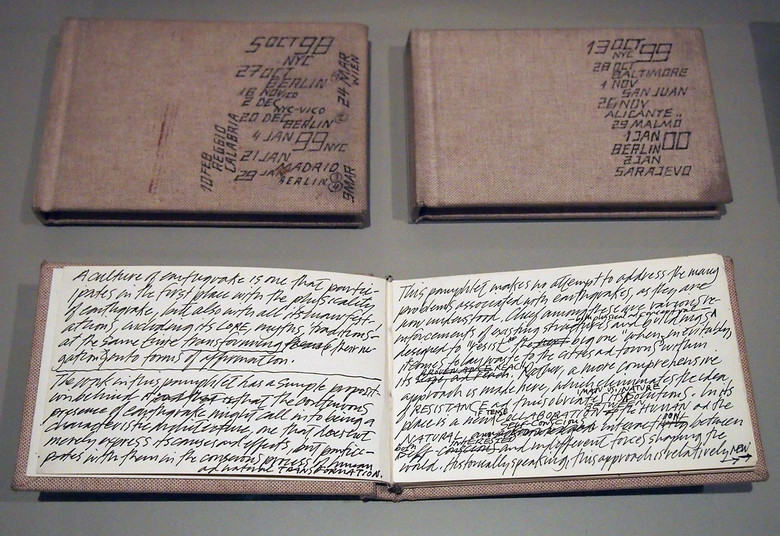 5 OCT 98
NYC
27 OCT
BERLIN
16 NOV
VICO
2 DEC
NYC-VICO
20 DEC
BERLIN
4 JAN 99
NYC
21 JAN
MADRID
29 JAN
BERLIN
10 FEB
REGGIO
CALABRIA
9 MAR
24 MAR
WIEN
13 OCT 99
NYC
28 OCT
BALTIMORE
1 NOV
SAN JUAN
26 NOV
ALICANTE
29 MALMÖ
1 JAN 00
BERLIN
2 JAN
SARAJEVO
A culture of earthquake is one that partici-
pates in the first place with the physicality
of earthquake, but also with all its human
including its LORE, myths, traditions-
at the same time transforming their ne-
gation into forms of affirmation.
The work in this pamphlet has a simple proposit-
ion behind it that the continuous
presence of earthquake might call into being a
characteristic architecture, one that does not
merely express its causes and effects, but partici-
pates with them in the conscious process of human
and natural TRANSFORMATION.
This pamphlet makes no attempt to address the many
problems associated with earthquakes, as they are
now understood. Chief among these are various re-
inforcements of existing structures and buildings
designed to "resist" the big one when inevitably
it comes to lay waste to the cities and towns within
its BROKEN REACH. Rather, a more comprehensive
approach is made here, which eliminates the idea
of RESISTANCE and thus obviates its SOLUTIONS. In its
place is a new COLLABORATION of the HUMAN and the
NATURAL, interaction between
self-conscious and indifferent forces shaping the
world. Historically speaking, this approach is relatively NEW